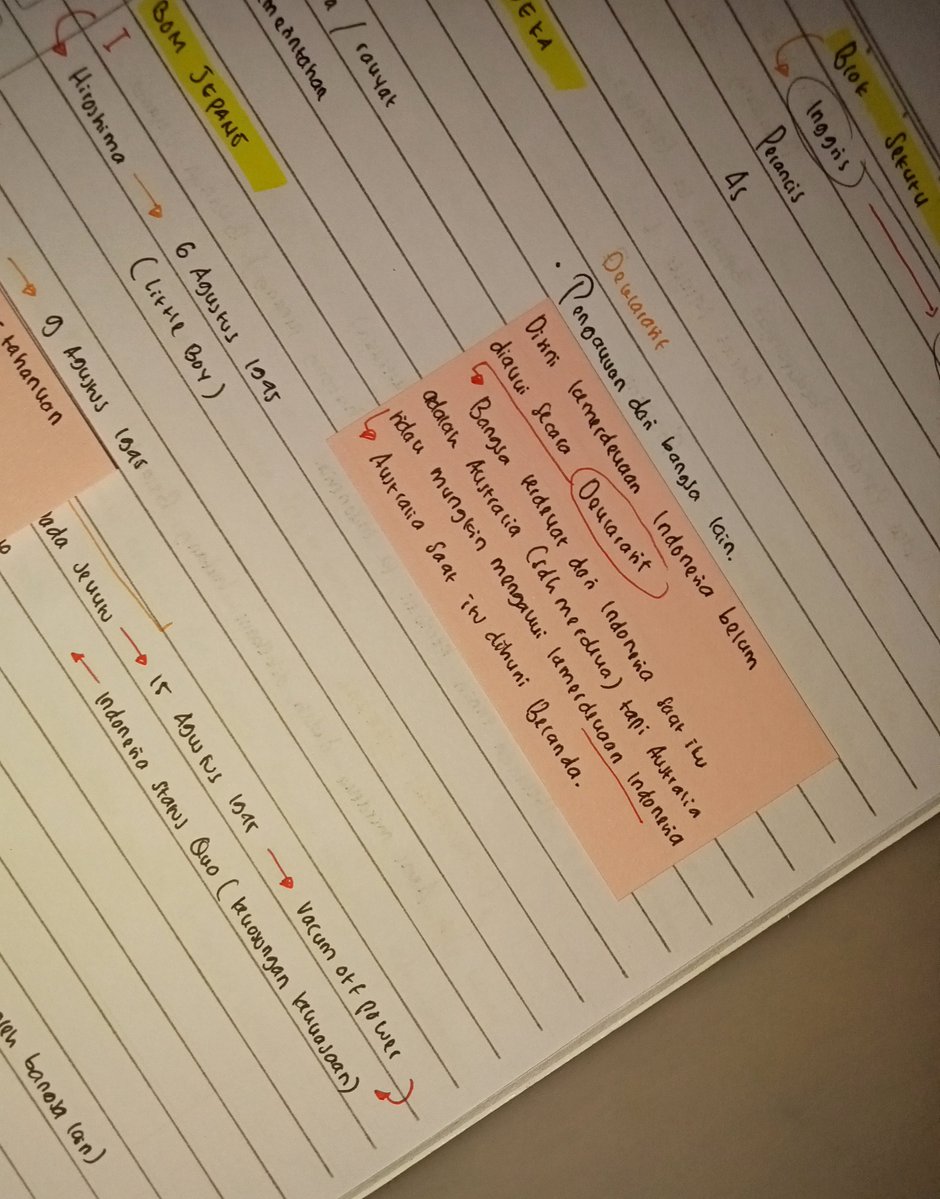 Blok Sekutu
Inggris
Perancis
AS
EKA
a / rakyat
merintahan
Deklaratif
• Pengakuan dari bangsa lain.
Disini kemerdekaan Indonesia belum
diakui secara Deklaratif
Bangsa terdekat dari Indonesia saat itu
adalah Australia (sdh merdeka) tapi Australia
tidak mungkin mengakui kemerdekaan Indonesia
Australia saat itu dihuni Belanda.
BOM JEPANG
I
Hiroshima → 6 Agustus 1945
(Little Boy)
→ 9 Agustus 1945
tahankan
pada sekutu → 15 Agustus 1945 → vacum off power
Indonesia status Quo (kekosongan kekuasaan)
leh bangsa lain)